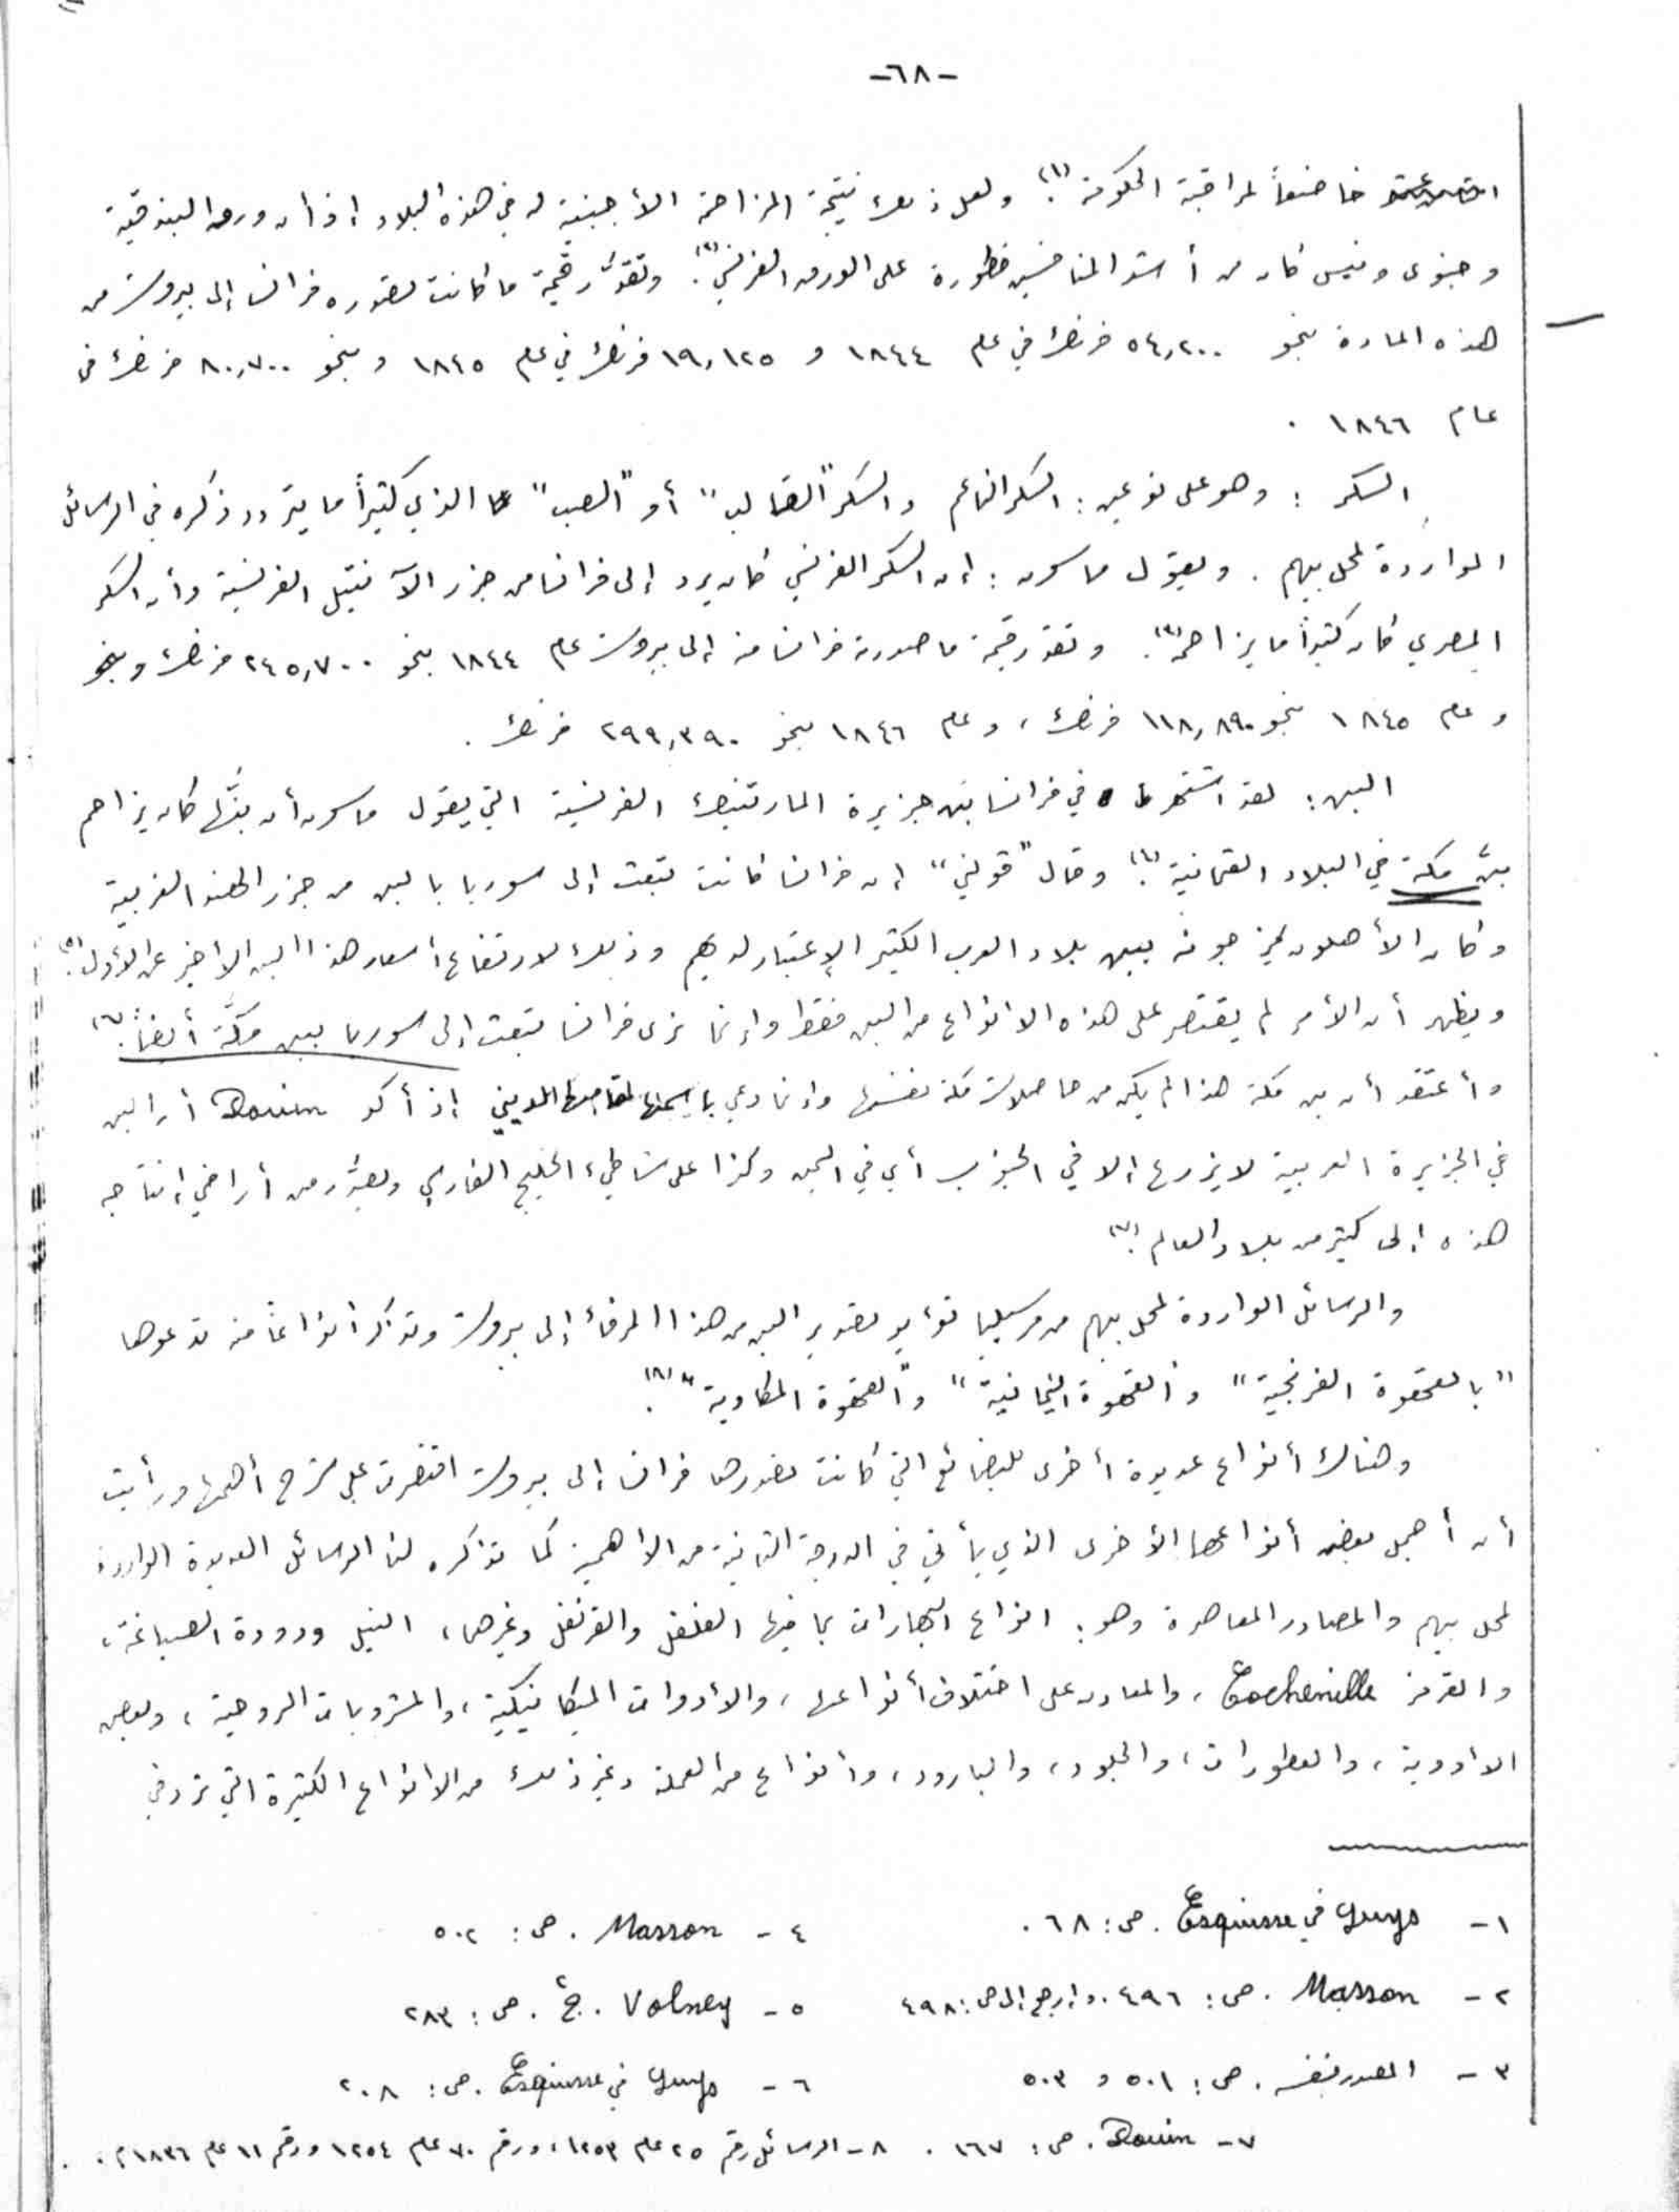 -٦٨-
خاضعاً لمراقبة الحكومة (١). ولعل ذلك نتيجة المزاحمة الأجنبية له في هذه البلاد إذ أن ورق البندقية
وجنوى ونيس كان من أشد المنافسين خطورة على الورق الفرنسي (٢). وتقدَّر قيمة ما كانت تصدره فرانسا إلى بيروت من
هذه المادة بنحو ٥٤,٢٠٠ فرنك في عام ١٨٤٤ و ١٩,١٢٥ فرنك في عام ١٨٤٥ وبنحو ٨٠,٧٠٠ فرنك في
عام ١٨٤٦ .
السكر : وهو على نوعين : السكر الناعم والسكر "القالب" أو "الصب" الذي كثيراً ما يتردد ذكره في الرسائل
الواردة لمحل بيهم . ويقول ماسون : إن السكر الفرنسي كان يرد إلى فرانسا من جزر الآنتيل الفرنسية وأن السكر
المصري كان كثيراً ما يزاحمه (٣). وتقدر قيمة ما صدرته فرانسا منه إلى بيروت عام ١٨٤٤ بنحو ٢٤٥,٧٠٠ فرنك وبنحو
وعام ١٨٤٥ بنحو ١١٨,٨٩٠ فرنك ، وعام ١٨٤٦ بنحو ٢٩٩,٣٩٠ فرنك .
البن : لقد اشتهر في فرانسا بن جزيرة المارتنيك الفرنسية التي يقول ماسون أن بنَّها كان يزاحم
بنَّ مكة في البلاد العثمانية (٤). وقال "ڤولني" إن فرانسا كانت تبعث إلى سوريا بالبن من جزر الهند الغربية
وكان الأهلون يمزجونه ببن بلاد العرب الكثير الإعتبار لديهم وذلك لارتفاع أسعار هذا البن الاخير عن الأول (٥).
ويظهر أن الأمر لم يقتصر على هذه الانواع من البن فقط وإنما نرى فرانسا تبعث إلى سوريا ببن مكَّة أيضاً (٦).
وأعتقد أن بن مكة هذا لم يكن من حاصلات مكة نفسها وإنما دعي باسمها الديني إذ أكد Douin أن البن
في الجزيرة العربية لا يزرع إلا في الجنوب أي في اليمن وكذا على شاطيء الخليج الفارسي ويصدَّر من أراضي إنتاجه
هذه إلى كثير من بلاد العالم (٧).
والرسائل الواردة لمحل بيهم من مرسيليا تؤيد تصدير البن من هذا المرفأ إلى بيروت وتذكر أنواعاً منه تدعوها
"بالقهوة الفرنجية" و"القهوة اليمانية" و"القهوة المكاوية" (٨).
وهناك أنواع عديدة أخرى للبضائع التي كانت تصدرها فرانسا إلى بيروت اقتصرت على شرح أهمها ورأيت
أن أجمل بعض أنواعها الأخرى الذي يأتي في الدرجة الثانية من الاهمية كما تذكره لنا الرسائل العديدة الواردة
لمحل بيهم والمصادر المعاصرة وهو : انواع البهارات بما فيها الفلفل والقرنفل وغيرهما ، النيل ودودة الصباغة ،
والقرمز Cochenille ، والمعادن على اختلاف أنواعها ، والأدوات الميكانيكية ، والمشروبات الروحية ، وبعض
الادوية ، والعطورات ، والجلود ، والبارود ، وأنواع من العملة وغير ذلك من الانواع الكثيرة التي ترد في
١ - Guys في Esquisse . ص : ٦٨ .
٢ - Masson . ص : ٤٩٦ . وارجع إلى ص : ٤٩٨
٣ - المصدر نفسه . ص : ٥٠١ و ٥٠٣
٤ - Masson . ص : ٥٠٢
٥ - Volney . ج٢ . ص : ٢٨٣
٦ - Guys في Esquisse . ص : ٢٠٨
٧ - Douin . ص : ١٦٧ . ٨ - الرسائل رقم ٢٥ عام ١٢٥٣ ، ورقم ٧٠ عام ١٢٥٤ ورقم ١١ عام ١٨٣٦م .